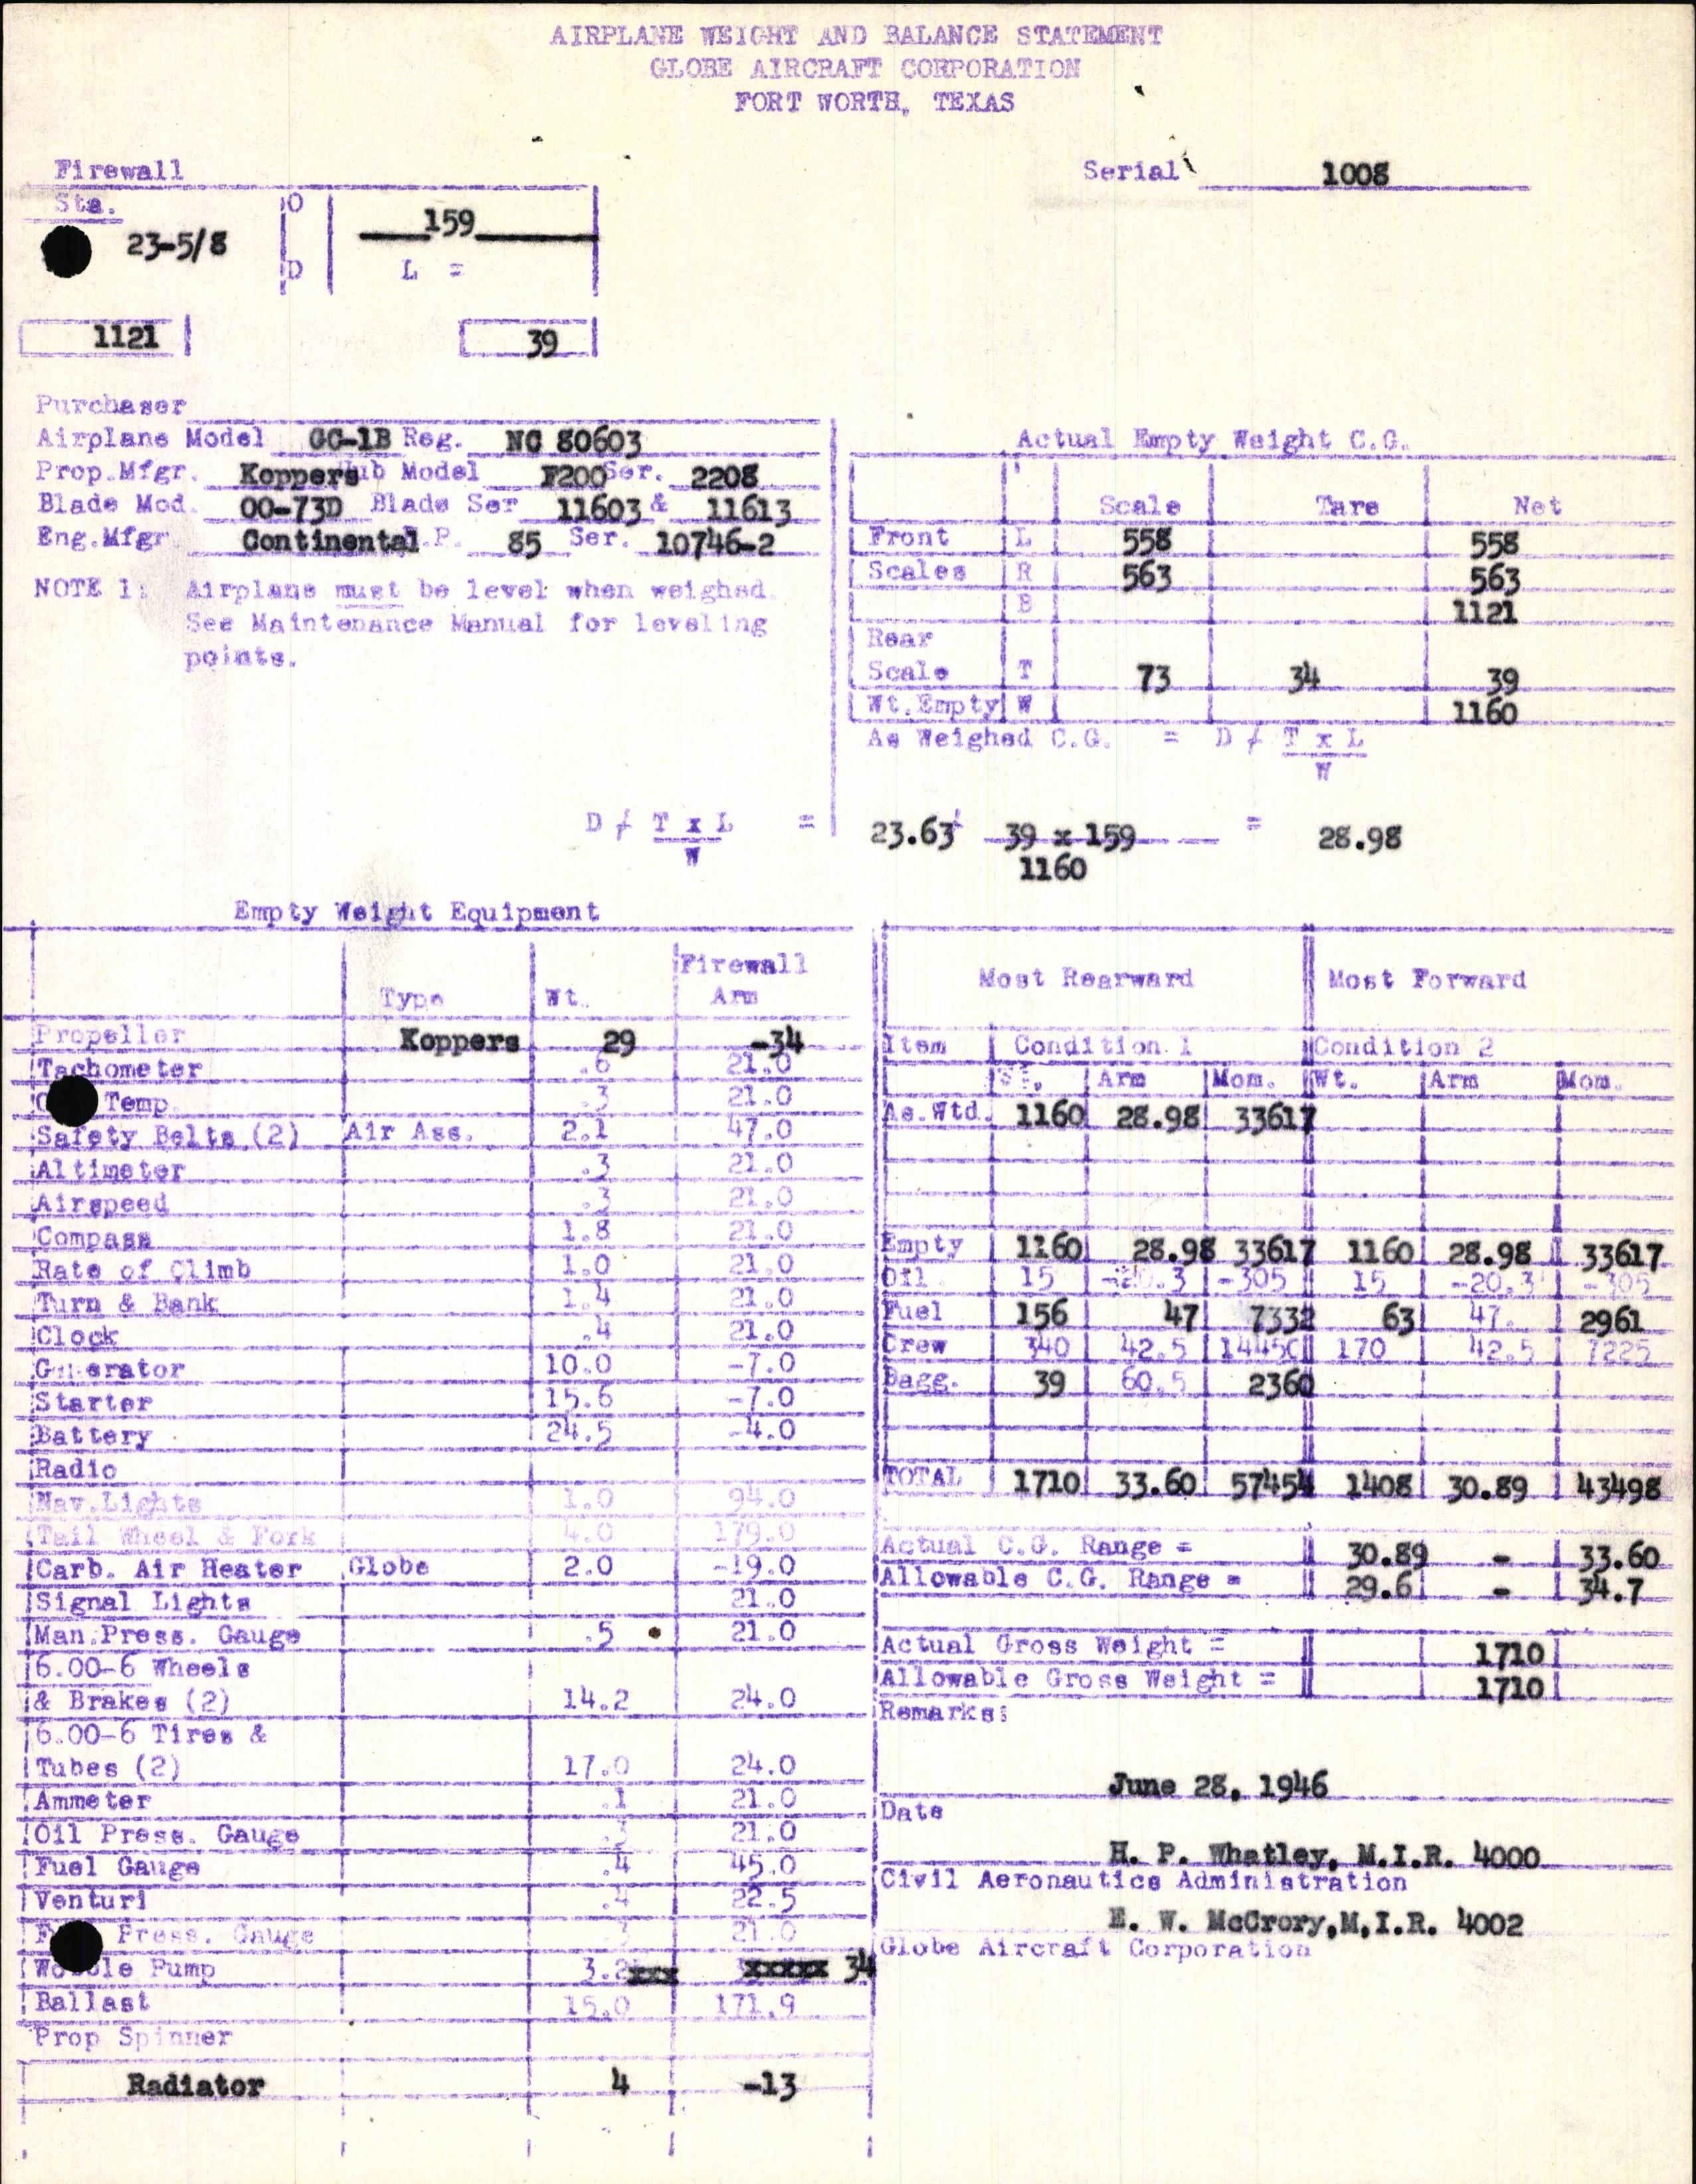 AIRPLANE WEIGHT AND BALANCE STATEMENT
GLOBE AIRCRAFT CORPORATION
FORT WORTH, TEXAS
Firewall
Serial 1008
Sta. O
159
23-5/8
D L =
1121 39
Purchaser
Airplane Model GC-1B Reg. NC 80603
Prop.Mfgr. Koppers Hub Model F200 Ser. 2208
Blade Mod. 00-73D Blade Ser 11603 & 11613
Eng.Mfgr Continental .P. 85 Ser. 10746-2
NOTE 1: Airplane must be level when weighed.
See Maintenance Manual for leveling
points.
Actual Empty Weight C.G.
Scale Tare Net
Front L 558 558
Scales R 563 563
1121
Rear
Scale T 73 34 39
Wt.Empty W 1160
As Weighed C.G. = D ⁄ T x L
W
D ⁄ T x L = 23.63 ⁄ 39 x 159 = 28.98
W 1160
Empty Weight Equipment
Type Wt. Firewall Arm
Propeller Koppers 29 -34
Tachometer .6 21.0
Temp .3 21.0
Safety Belts (2) Air Ass. 2.1 47.0
Altimeter .3 21.0
Airspeed .3 21.0
Compass 1.8 21.0
Rate of Climb 1.0 21.0
Turn & Bank 1.4 21.0
Clock .4 21.0
Generator 10.0 -7.0
Starter 15.6 -7.0
Battery 24.5 -4.0
Radio
Nav.Lights 1.0 94.0
Tail Wheel & Fork 4.0 179.0
Carb. Air Heater Globe 2.0 -19.0
Signal Lights 21.0
Man.Press. Gauge .5 21.0
6.00-6 Wheels
& Brakes (2) 14.2 24.0
6.00-6 Tires &
Tubes (2) 17.0 24.0
Ammeter .1 21.0
Oil Press. Gauge .3 21.0
Fuel Gauge .4 45.0
Venturi .4 22.5
Press. Gauge 21.0
Wobble Pump 3.2xxx xxxxx 34
Ballast 15.0 171.9
Prop Spinner
Radiator 4 -13
Most Rearward Most Forward
Item Condition 1 Condition 2
Wt. Arm Mom. Wt. Arm Mom.
As.Wtd. 1160 28.98 33617
Empty 1160 28.98 33617 1160 28.98 33617
Oil 15 -20.3 -305 15 -20.3 -305
Fuel 156 47 7332 63 47. 2961
Crew 340 42.5 14450 170 42.5 7225
Bagg. 39 60.5 2360
TOTAL 1710 33.60 57454 1408 30.89 43498
Actual C.G. Range = 30.89 - 33.60
Allowable C.G. Range = 29.6 - 34.7
Actual Gross Weight = 1710
Allowable Gross Weight = 1710
Remarks:
June 28, 1946
Date
H. P. Whatley, M.I.R. 4000
Civil Aeronautics Administration
E. W. McCrory,M,I.R. 4002
Globe Aircraft Corporation